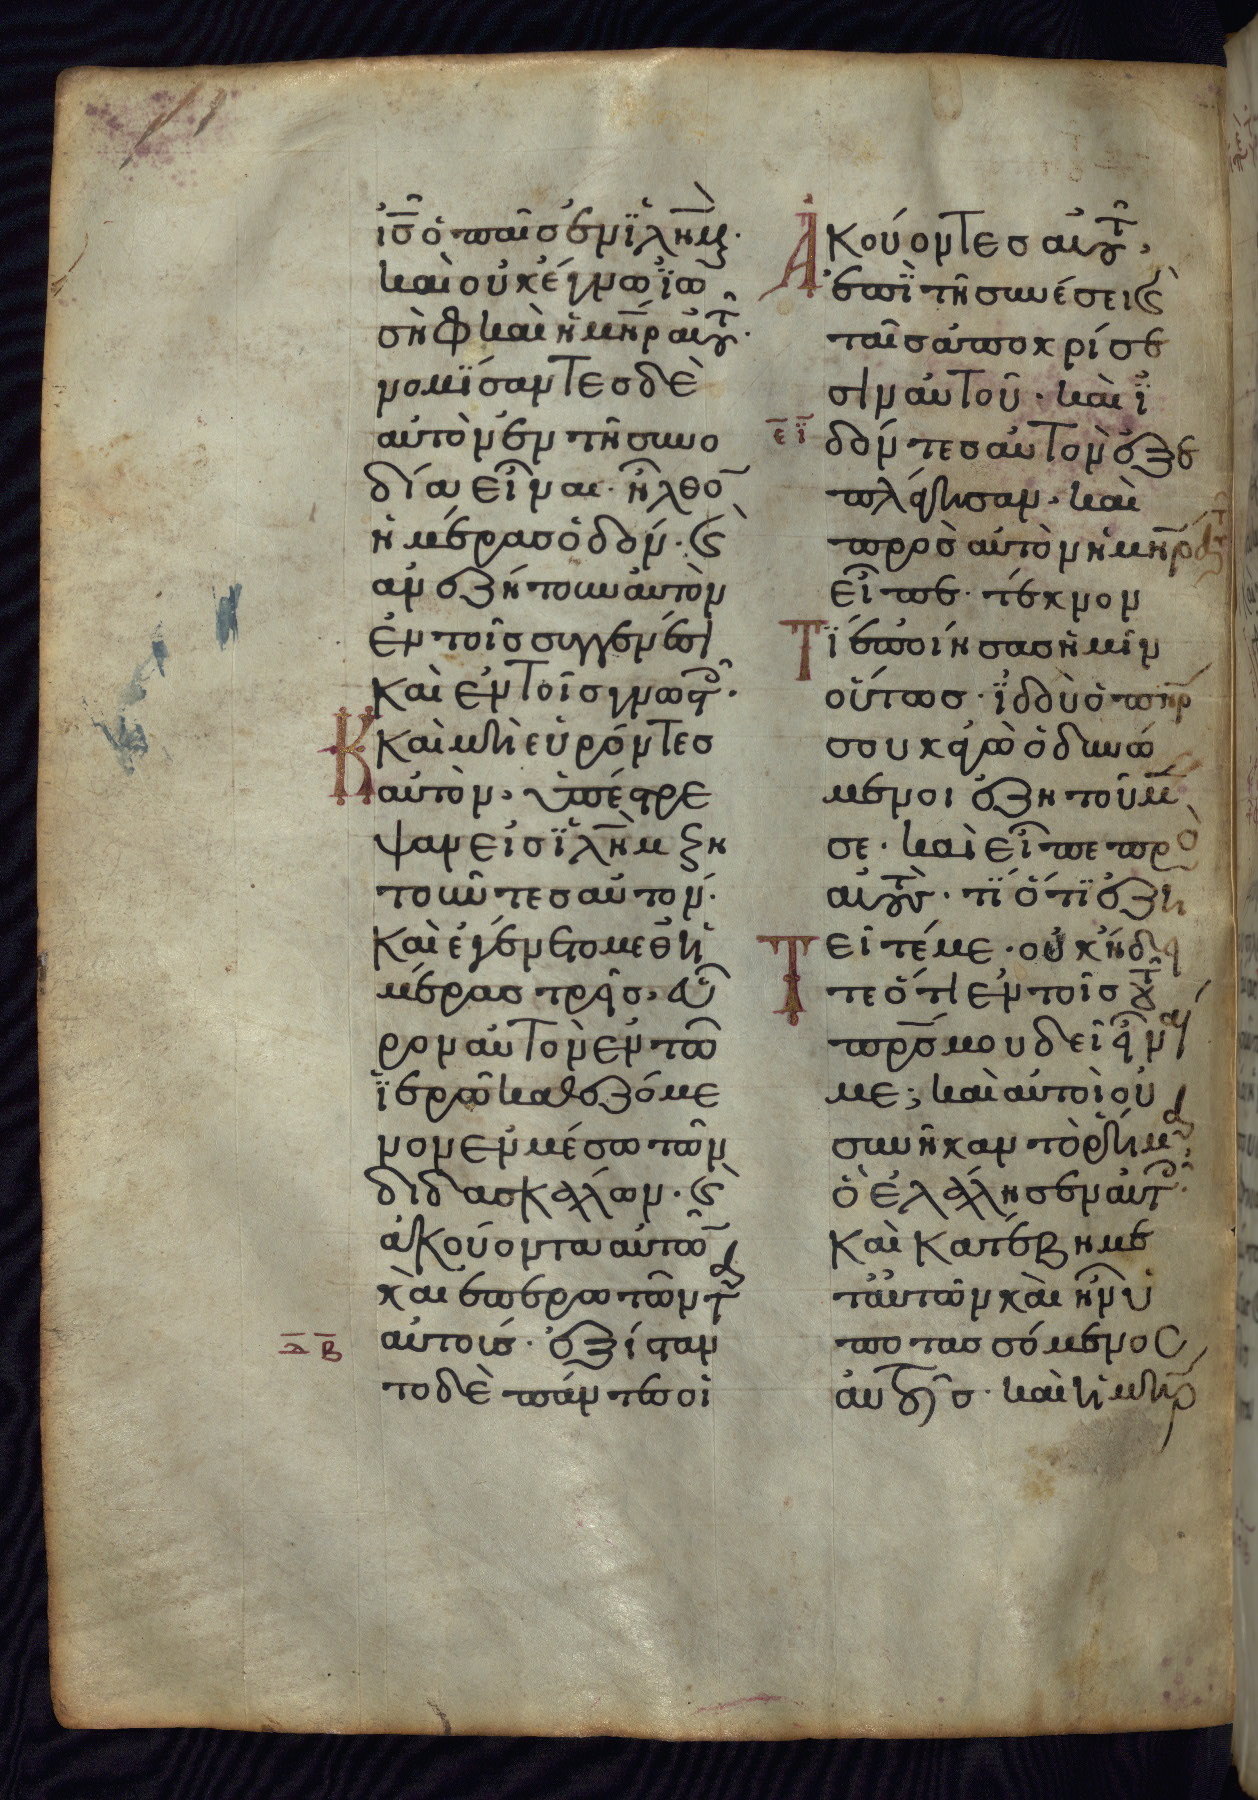 ἰ̅ς̅ ὁ παῖσ ἐν ϊ̅λ̅η̅μ̅·
καὶ οὐκ ἔγνω ϊω
σὴφ καὶ ἡ μ̅η̅ρ̅ αὐτ(οῦ)·
νομϊσαντεσ δὲ
αὐτὸν ἐν τῆ συνο
δία εἶναι· ἦλθο̅
ἡμέρασ ὁδόν· (καὶ)
ἀνεζήτουν αὐτὸν
ἐν τοῖσ συγγενέσι
καὶ ἐν τοῖσ γνωστ(οῖσ)·
Κ καὶ μὴ εὑρόντεσ
αὐτὸν, ὑπέστρε
ψαν εἰσ ϊ̅λ̅η̅μ̅ ζη
τοῦντεσ αὐτόν·
καὶ ἐγένετο μεθ ἡ
μέρασ τρεῖσ, εὗ
ρον αὐτὸν ἐν τῶ
ϊερῶ καθεζόμε
νον ἐν μέσω τῶν
διδασκάλων· (καὶ)
ἀκούοντα αὐτῶ̅
καὶ ἐπερωτῶντα
λ̅ β̅ αὐτούσ· ἐξίσταν
το δὲ πάντεσ οἱ
Ἀκούοντεσ αὐτ(οῦ),
ἐπϊ τῆ συνέσει (καὶ)
ταῖσ ἀποκρίσε
σιν αὐτοῦ· καὶ ϊ
ε̅ϊ̅ δόντεσ αὐτὸν ἐξε
πλάγησαν· καὶ
πρὸσ αὐτὸν ἡ μ̅η̅ρ̅ αὐτ(οῦ)
εἶπε· τέκνον
Τϊ ἐποίησασ ἡμῖν
οὕτωσ· ϊδοὺ ὁ π̅η̅ρ̅
σου κἀγὼ ὀδυνώ
μενοι ἐζητοῦμ(εν)
σε· καὶ εἶπε πρὸ(σ)
αὐτούσ· τϊ ὅτϊ ἐζη
Τ εῖτέ με· οὐκ ἤδει
τε ὅτι ἐν τοῖσ τοῦ
π̅ρ̅σ̅ μου δεῖ εἶναι
με; καὶ αὐτοὶ οὐ
συνῆκαν τὸ ῥῆμα
ὃ ἐλάλησεν αὐτ(οῖσ)·
καὶ κατέβη με
τ αὐτῶν καὶ ἦν ὑ
ποτασσόμενοσ
αὐτοῖσ· καὶ ἡ μ̅η̅ρ̅